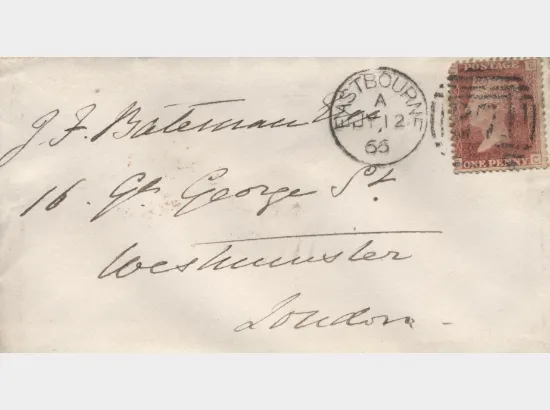 J. F. Bateman
16. Gt. George St.
Westminster
London
EASTBOURNE
A
JY 12
66
POSTAGE
ONE PENNY